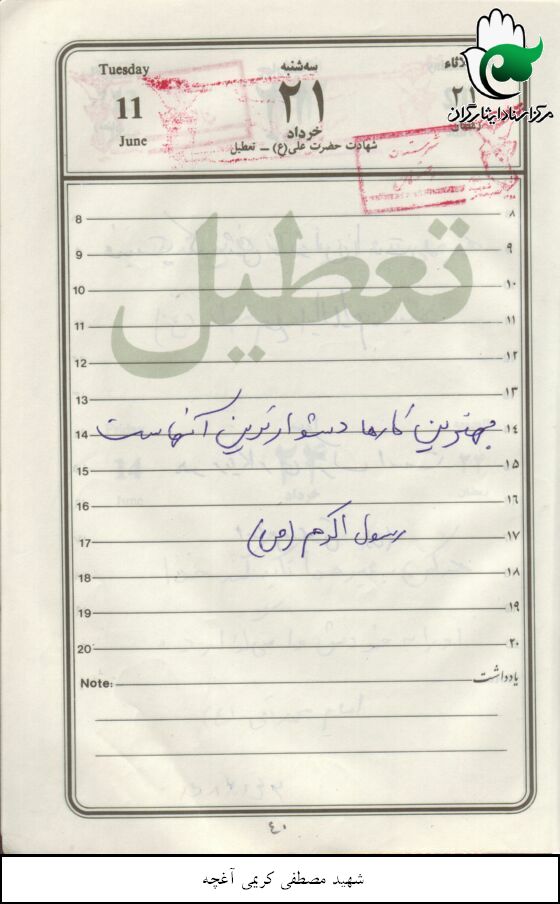 مرکز اسناد ایثارگران
Tuesday سه‌شنبه ثلاثاء
11 ۲۱ ۲۱
June خرداد
شهادت حضرت علی (ع) ــ تعطیل
تعطیل
8 ۸
9 ۹
10 ۱۰
11 ۱۱
12 ۱۲
13 ۱۳
14 بهترین کارها دشوارترین آنهاست ۱۴
15 ۱۵
16 ۱۶
17 رسول اکرم (ص) ۱۷
18 ۱۸
19 ۱۹
20 ۲۰
Note: یادداشت
۴۰
شهید مصطفی کریمی آغچه